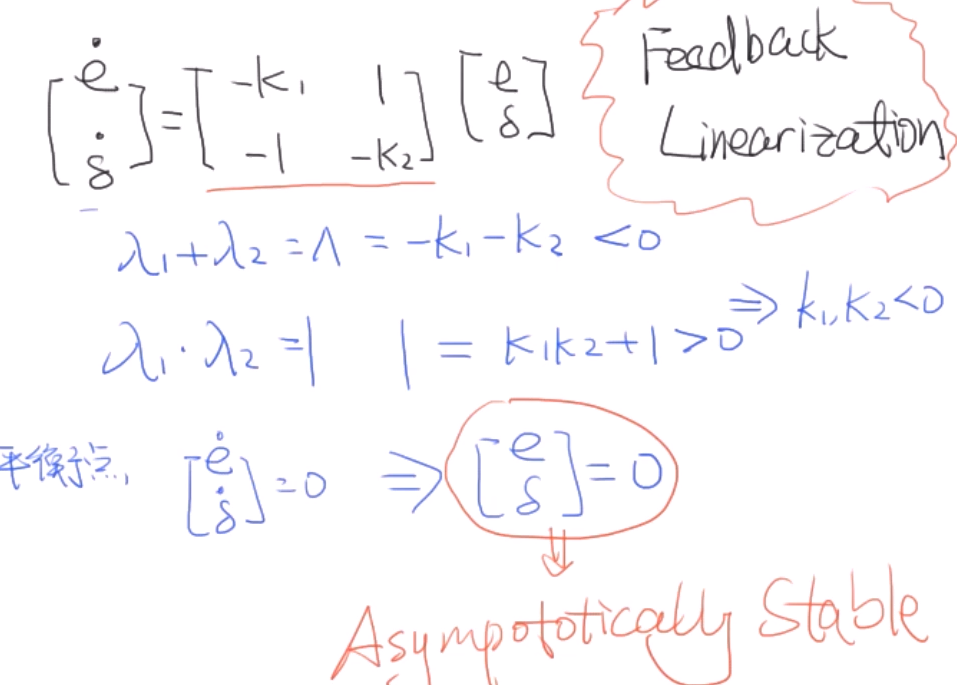 [ė δ̇] = [-k₁ 1 -1 -k₂] [e δ]
Feedback
Linearization
λ₁+λ₂ = Λ = -k₁-k₂ <0
λ₁·λ₂ = | | = k₁k₂+1 >0 ⇒ k₁,k₂<0
平衡点, [ė δ̇]=0 ⇒ [e δ]=0
⇓
Asympototically Stable